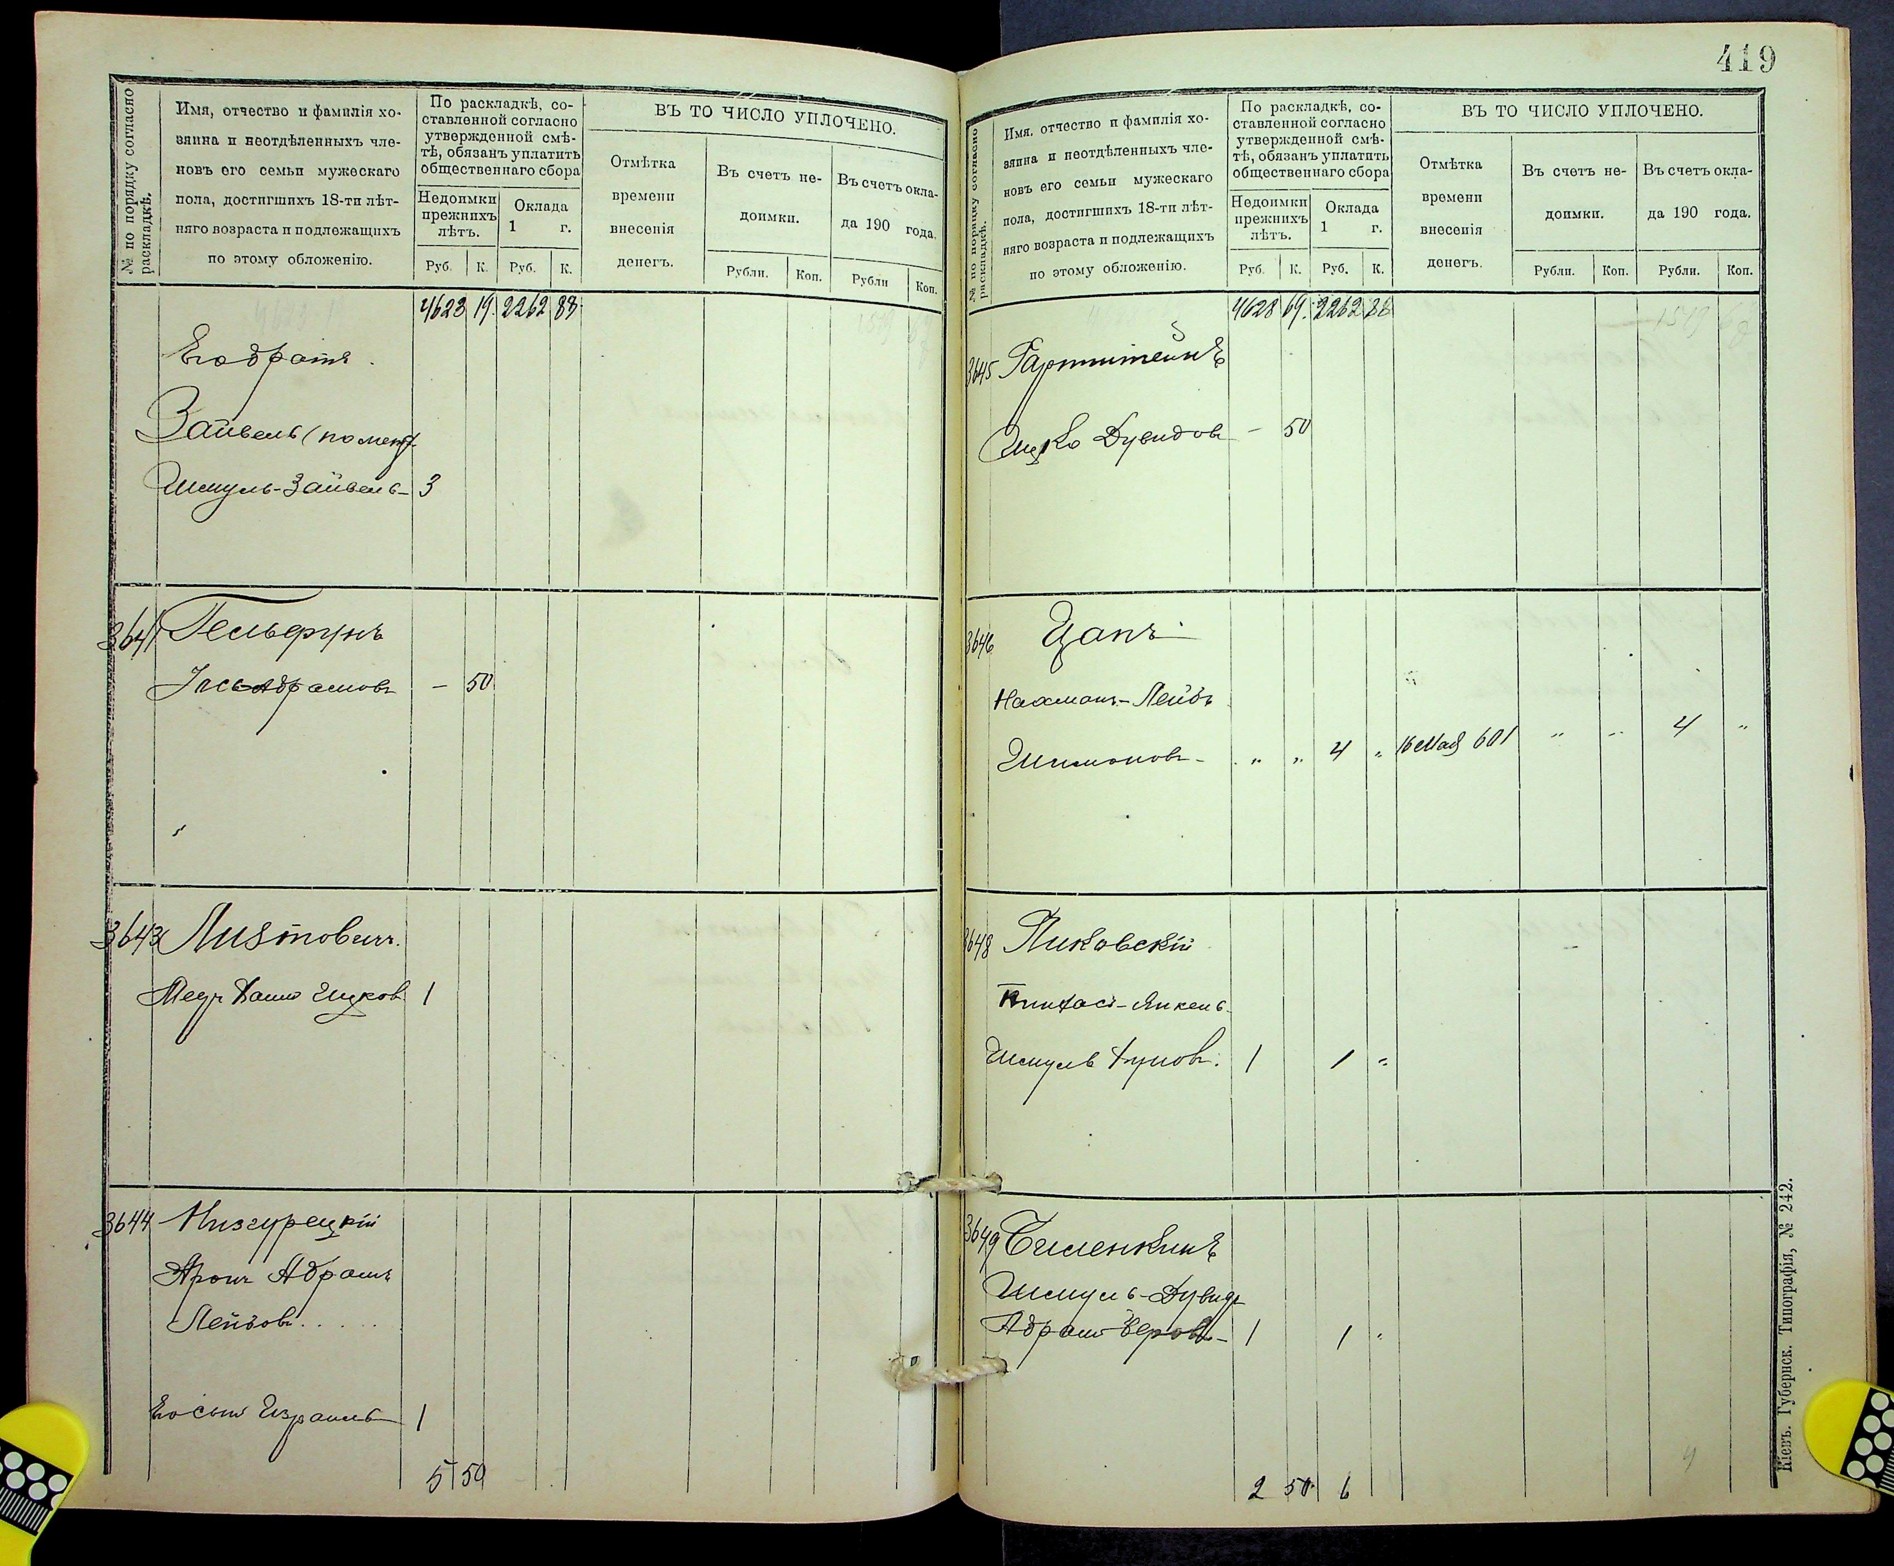 419
№ по порядку согласно раскладкѣ.
Имя, отчество и фамилія хо-
зяина и неотдѣленныхъ чле-
новъ его семьи мужескаго
пола, достигшихъ 18-ти лѣт-
няго возраста и подлежащихъ
по этому обложенію.
По раскладкѣ, со-
ставленной согласно
утвержденной смѣ-
тѣ, обязанъ уплатить
общественнаго сбора
Недоимки
прежнихъ
лѣтъ.
Оклада
1 г.
Руб. К. Руб. К.
ВЪ ТО ЧИСЛО УПЛОЧЕНО.
Отмѣтка
времени
внесенія
денегъ.
Въ счетъ не-
доимки.
Рубли. Коп.
Въ счетъ окла-
да 190 года.
Рубли Коп.
4623 19. 2262 88
Его братъ.
Зайвель (по мет.
Шмуль-Зайвель- 3
3641 Гельфунъ
Абрамовъ — 50
3643
Ицков 1
3644 Низгурецкій
Аронъ Абрамъ
Лейбовъ.....
Его сынъ Израиль 1
5 50
№ по порядку согласно раскладкѣ.
Имя, отчество и фамилія хо-
зяина и неотдѣленныхъ чле-
новъ его семьи мужескаго
пола, достигшихъ 18-ти лѣт-
няго возраста и подлежащихъ
по этому обложенію.
По раскладкѣ, со-
ставленной согласно
утвержденной смѣ-
тѣ, обязанъ уплатить
общественнаго сбора
Недоимки
прежнихъ
лѣтъ.
Оклада
1 г.
Руб. К. Руб. К.
ВЪ ТО ЧИСЛО УПЛОЧЕНО.
Отмѣтка
времени
внесенія
денегъ.
Въ счетъ не-
доимки.
Рубли. Коп.
Въ счетъ окла-
да 190 года.
Рубли. Коп.
4628 69. 2262 88
3645 Гартштейнъ
Ицко Дувидовъ — 50
3646 Цапъ
Нахманъ-Лейбъ
Шимоновъ- " " 4 " 16 Мая 601 " " 4 "
3648 Пиковскій
Пинхасъ-Янкель-
Шмуль 1 1 "
3649 Биленкинъ
Шмуль-Дувидъ
Абрамъ Беровъ- 1 1 "
2 50 6
4
Кіевъ. Губернск. Типографія, № 242.